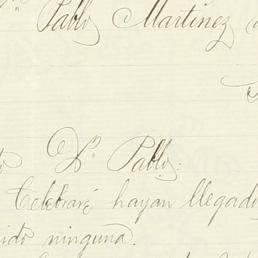 Pablo Martinez
Dn Pablo:
Celebraré hayan llegado
ido ninguna.